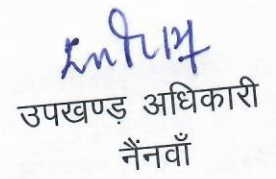 उपखण्ड अधिकारी
नैंनवाँ